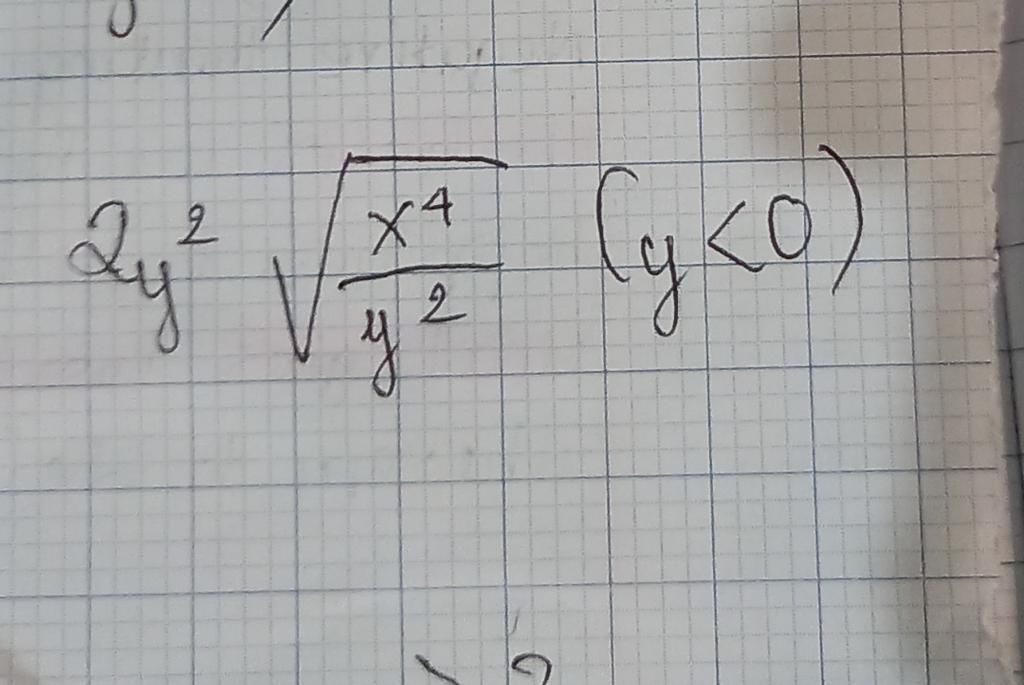 2y² √(x⁴/y²) (y<0)